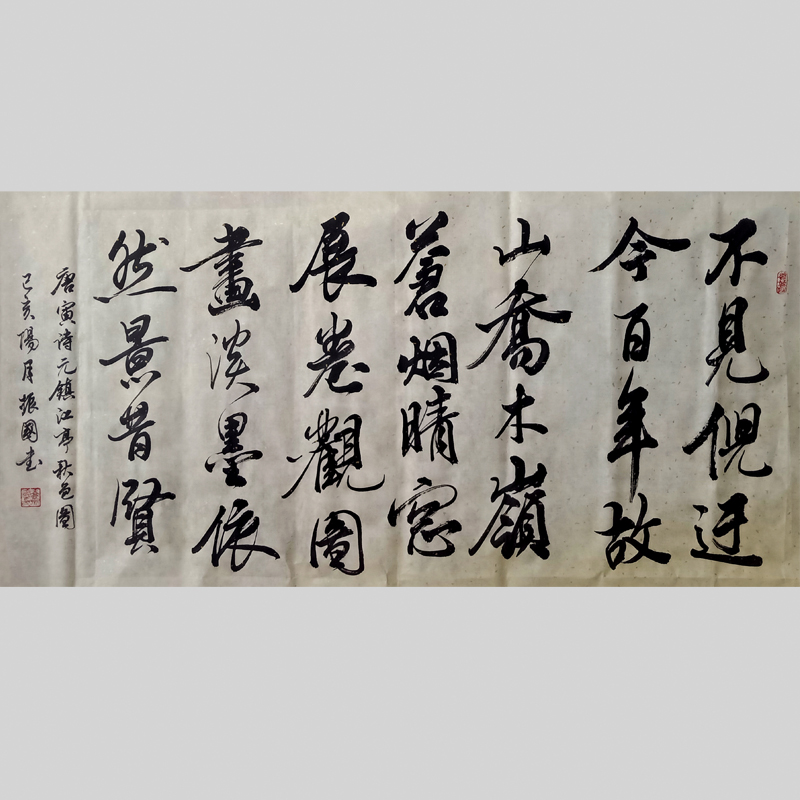 不見倪迂
今百年故
山喬木嶺
蒼烟晴窓
展卷觀圖
畫淡墨依
然景昔賢
唐寅诗元鎮江亭秋色圖
己亥陽月振國书